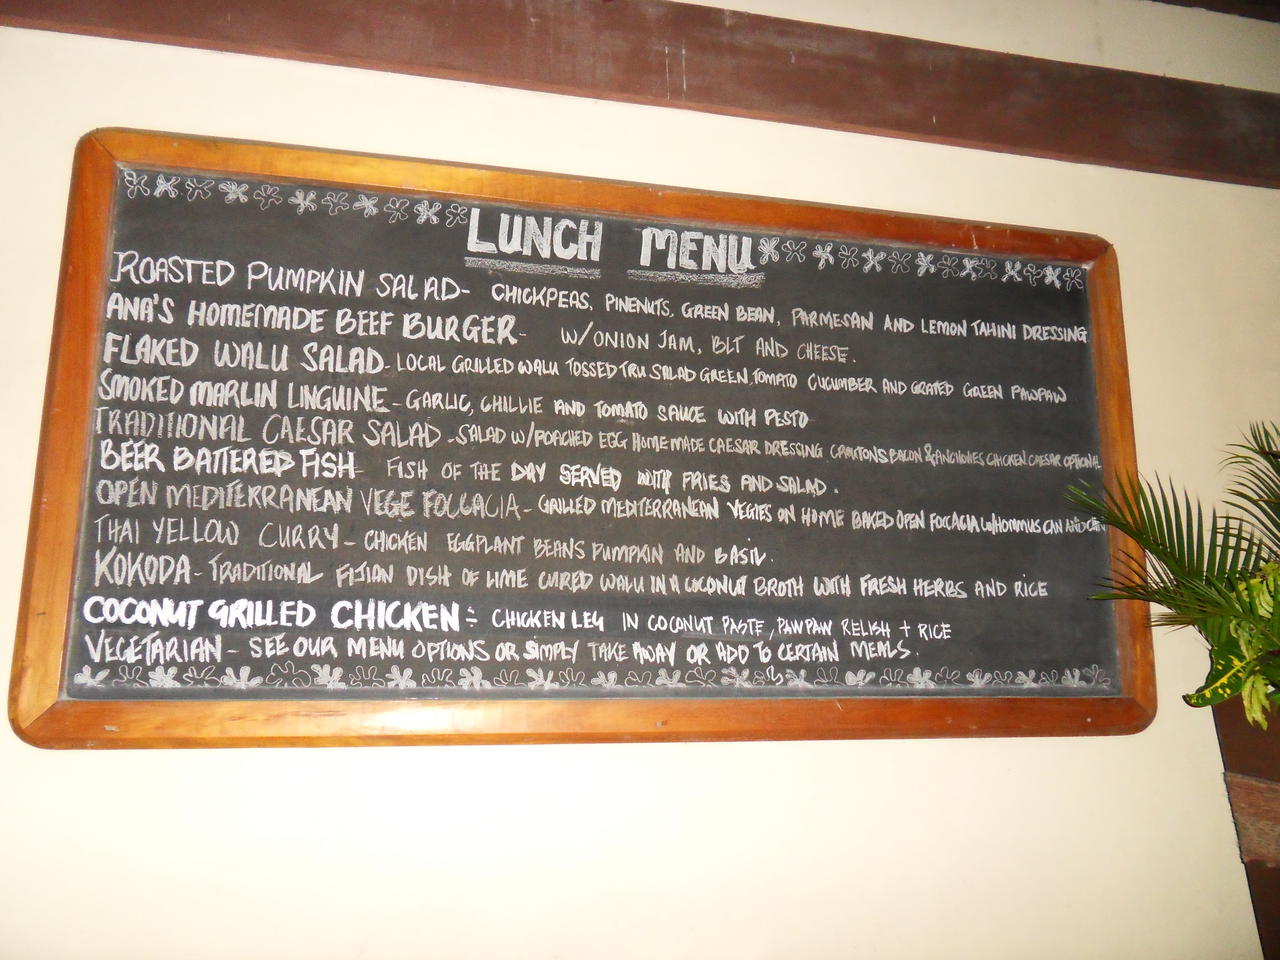 LUNCH MENU
ROASTED PUMPKIN SALAD- CHICKPEAS, PINENUTS, GREEN BEAN, PARMESAN AND LEMON TAHINI DRESSING
ANA'S HOMEMADE BEEF BURGER- W/ONION JAM, BLT AND CHEESE.
FLAKED WALU SALAD- LOCAL GRILLED WALU TOSSED TRU SALAD GREEN, TOMATO CUCUMBER AND GRATED GREEN PAWPAW
SMOKED MARLIN LINGUINE - GARLIC, CHILLIE AND TOMATO SAUCE WITH PESTO
TRADITIONAL CAESAR SALAD - SALAD W/POACHED EGG HOMEMADE CAESAR DRESSING CROUTONS BACON & CHICKEN CAESAR OPTIONAL
BEER BATTERED FISH FISH OF THE DAY SERVED WITH FRIES AND SALAD.
OPEN MEDITERRANEAN VEGE FOCCACIA - GRILLED MEDITERRANEAN VEGIES ON HOME BAKED OPEN FOCCACIA W/HOMMUS CAN
THAI YELLOW CURRY - CHICKEN EGGPLANT BEANS PUMPKIN AND BASIL.
KOKODA - TRADITIONAL FIJIAN DISH OF LIME CURED WALU IN A COCONUT BROTH WITH FRESH HERBS AND RICE
COCONUT GRILLED CHICKEN:- CHICKEN LEG IN COCONUT PASTE, PAWPAW RELISH + RICE
VEGETARIAN - SEE OUR MENU OPTIONS OR SIMPLY TAKE AWAY OR ADD TO CERTAIN MEALS.